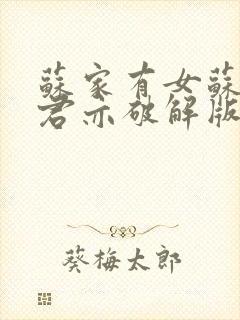 蘇家有女蘇
君亦破解版
葵梅太郎